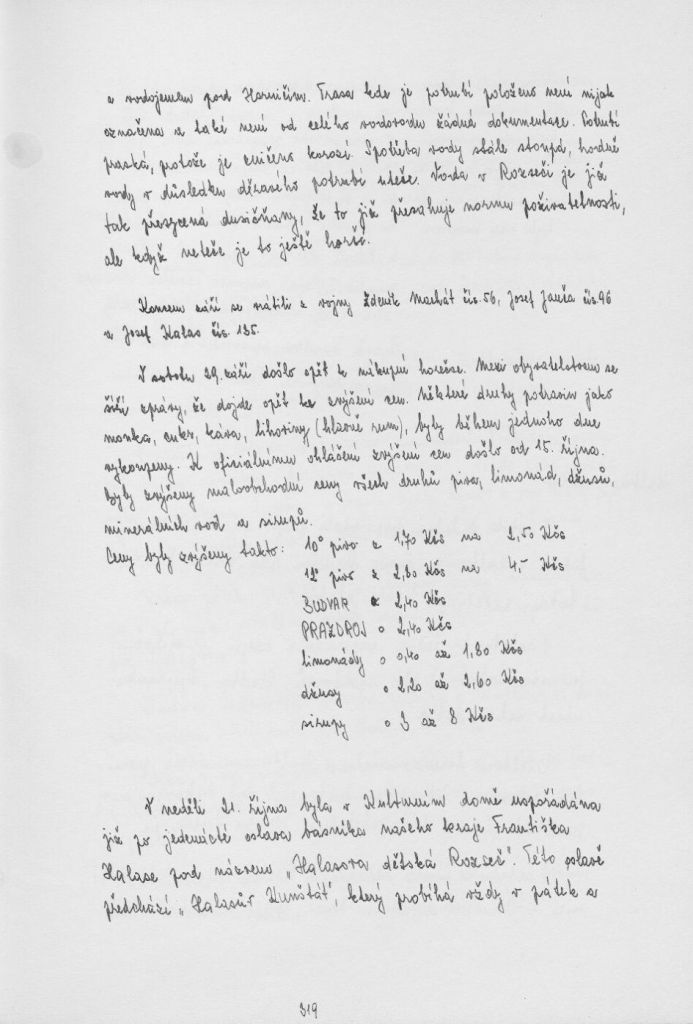 a vodojemem pod Horničím. Trasa kde je potrubí položeno není nijak
označena a také není od celého vodovodu žádná dokumentace. Potrubí
praská, protože je zničeno korozí. Spotřeba vody stále stoupá, hodně
vody v důsledku děravého potrubí uteče. Voda v Rozseči je již
tak přesycená dusičňany, že to již přesahuje normu poživatelnosti,
ale když neteče je to ještě horší.
Koncem září se vrátili z vojny Zdeněk Machát čís. 56, Josef Janča čís. 96
a Josef Kalas čís. 135.
V sobotu 29. září došlo opět k nákupní horečce. Mezi obyvatelstvem se
šíří zprávy, že dojde opět ke zvýšení cen. Některé druhy potravin jako
mouka, cukr, káva, lihoviny (hlavně rum), byly během jednoho dne
vykoupeny. K oficiálnímu ohlášení zvýšení cen došlo od 15. října.
Byly zvýšeny maloobchodní ceny všech druhů piva, limonád, džusů,
minerálních vod a sirupů.
Ceny byly zvýšeny takto: 10° pivo z 1,70 Kčs na 2,50 Kčs
12° pivo z 2,80 Kčs na 4,- Kčs
BUDVAR o 2,40 Kčs
PRAZDROJ o 2,40 Kčs
limonády o 0,40 až 1,80 Kčs
džusy o 2,20 až 2,60 Kčs
sirupy o 3 až 8 Kčs
V neděli 21. října byla v Kulturním domě uspořádána
již po jedenácté oslava básníka našeho kraje Františka
Halase pod názvem „Halasova dětská Rozseč". Této oslavě
předchází „Halasův Kunštát", který probíhá vždy v pátek a
319